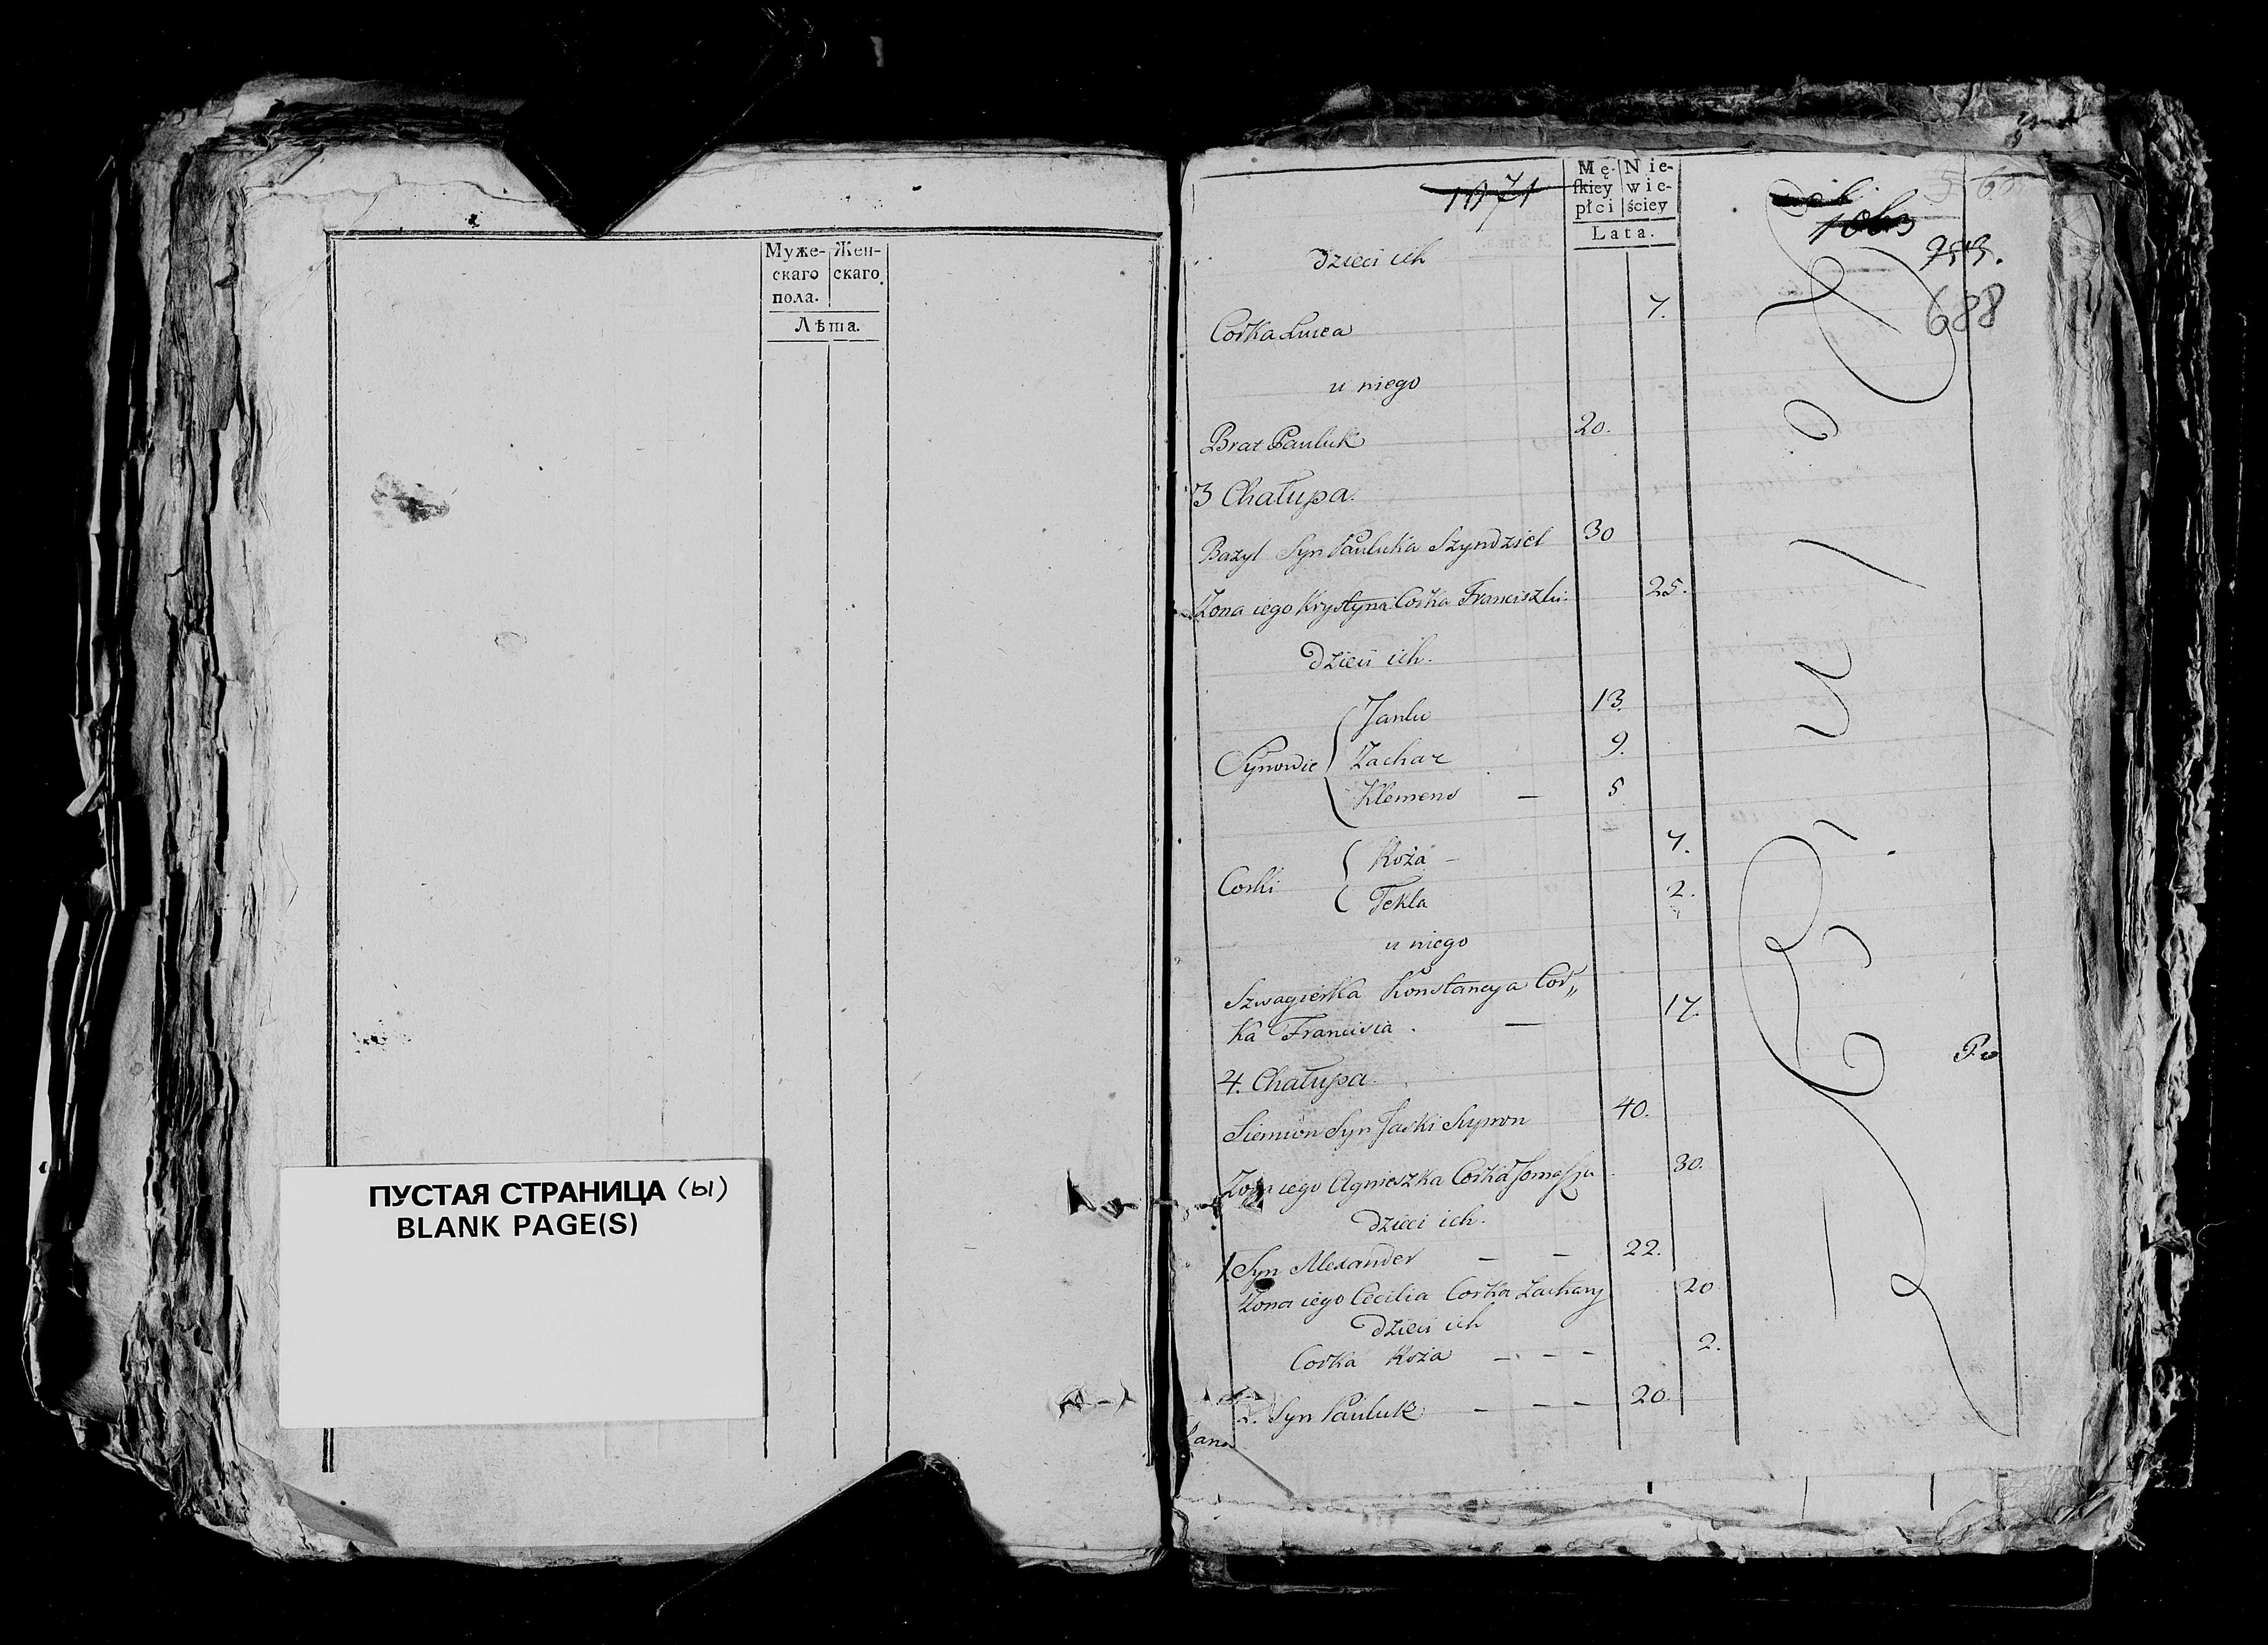 Муже-
скаго
пола.
Жен-
скаго
Лѣта.
ПУСТАЯ СТРАНИЦА (ы)
BLANK PAGE(S)
Mę-
skiey
płci
Nie-
wie-
ściey
Lata.
1071
688
Dzieci ich
Corka Łucea 7.
u niego
Brat Pauluk 20.
3 Chałupa.
Bazyl Syn Pauluka Szyndziel 30
Zona iego Krystyna Corka Franciszka 25.
Dzieci ich.
Synowie
Janko 13.
Zachar 9.
Klemens — 5
Corki
Roża – 7.
Tekla 2.
u niego
Szwagierka Konstancya Cor„
ka Franciszka . — 17.
4. Chałupa.
Siemion Syn Jaski 40.
Zona iego Agnieszka Corka Tomasza 30.
Dzieci ich.
1. Syn Alexander — — 22.
Zona iego Cecilia Corka Zachary 20
Dzieci ich
Corka Roża — – – 2.
2. Syn Pauluk – – – 20.